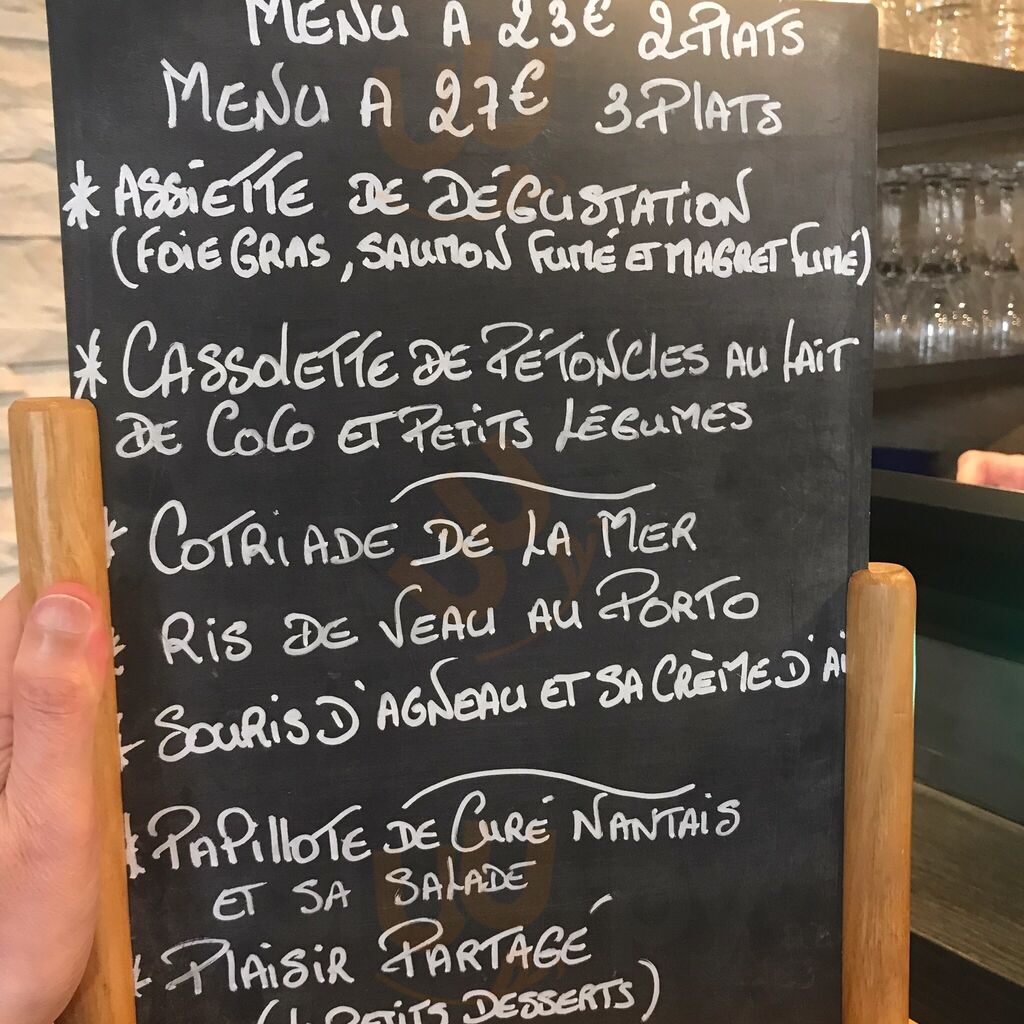 MENU A 23€ 2 PLATS
MENU A 27€ 3 PLATS
* ASSIETTE DE DÉGUSTATION
(FOIE GRAS, SAUMON FUMÉ ET MAGRET FUMÉ)
* CASSOLETTE DE PÉTONCLES AU LAIT
DE COCO ET PETITS LÉGUMES
* COTRIADE DE LA MER
* RIS DE VEAU AU PORTO
* SOURIS D'AGNEAU ET SA CRÈME D'AI
* PAPILLOTE DE CURÉ NANTAIS
ET SA SALADE
* PLAISIR PARTAGÉ
(4 PETITS DESSERTS)